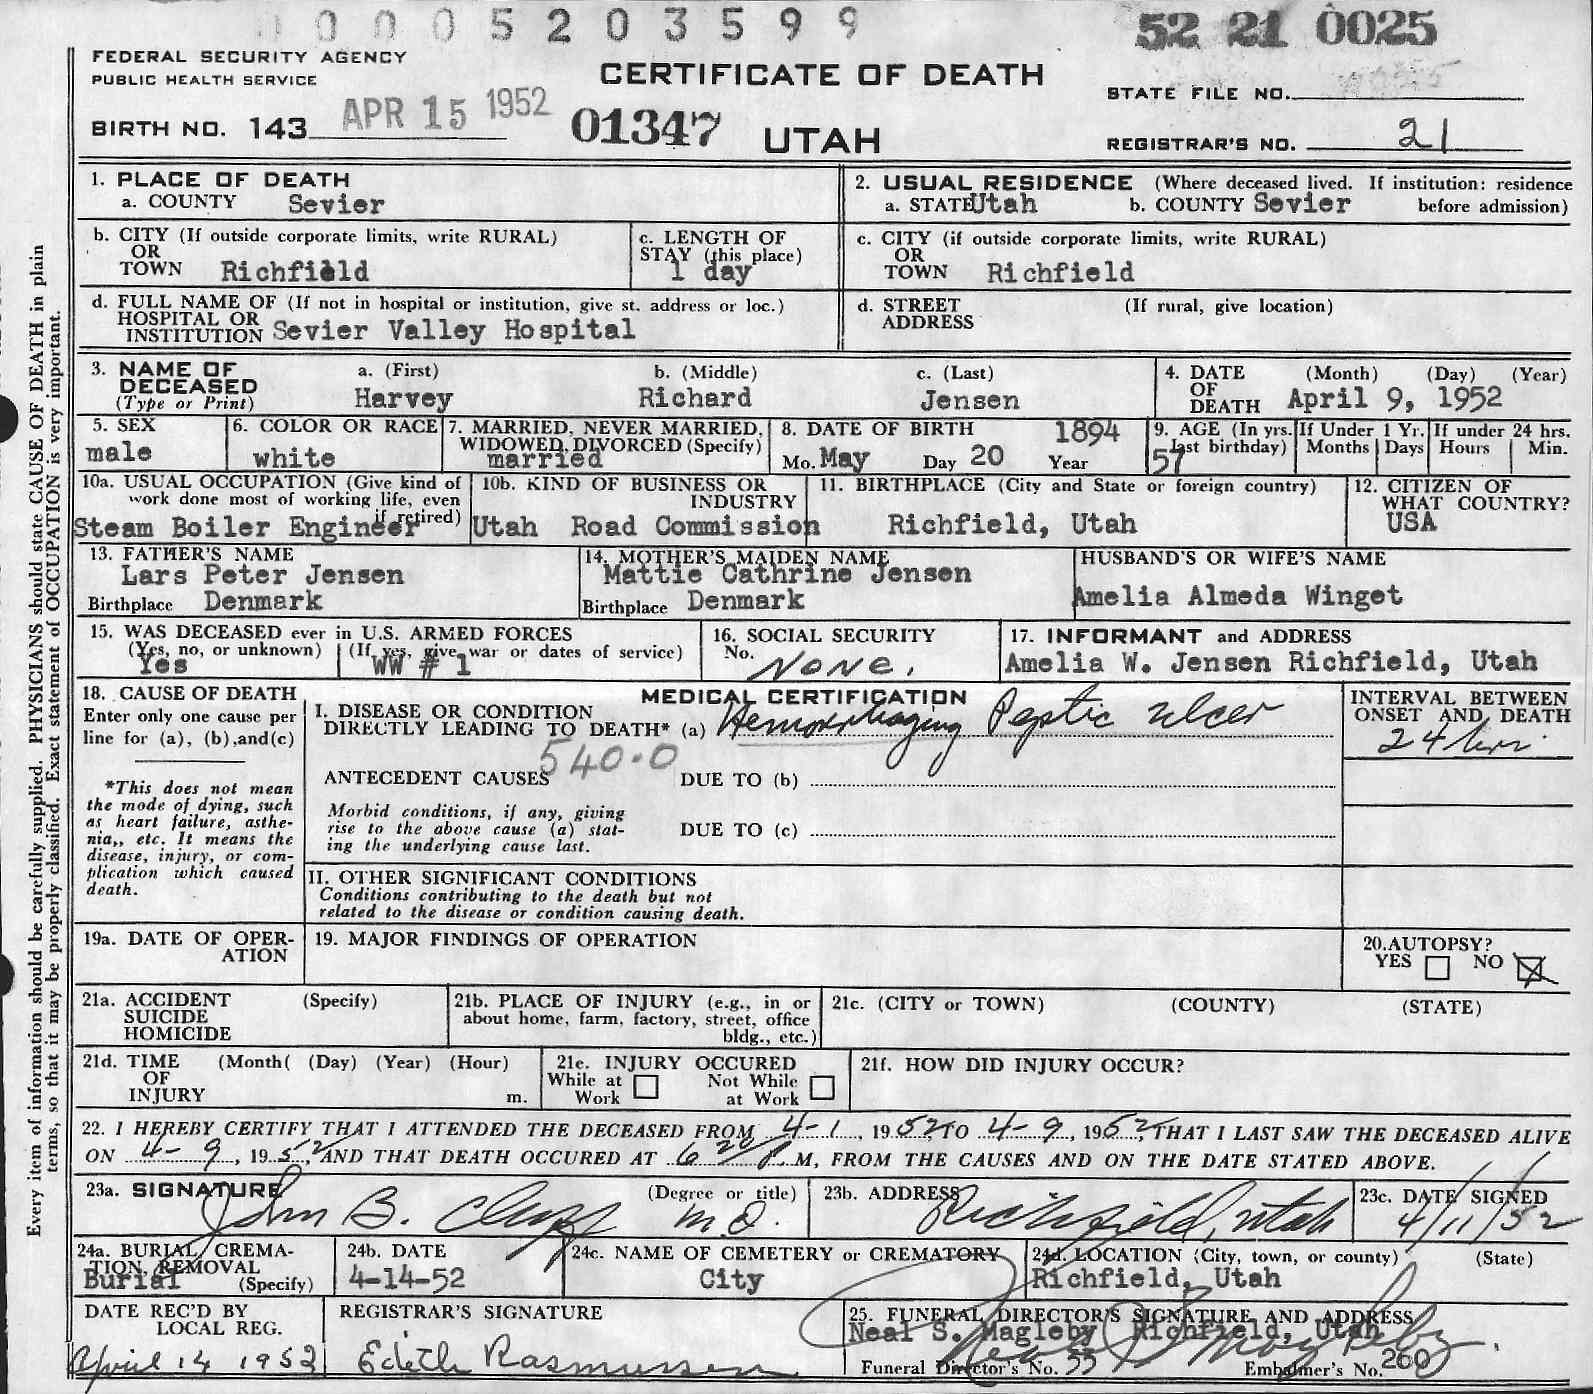 0005203599
52 21 0025
FEDERAL SECURITY AGENCY
PUBLIC HEALTH SERVICE
CERTIFICATE OF DEATH
STATE FILE NO.
BIRTH NO. 143
APR 15 1952
01347 UTAH
REGISTRAR'S NO. 21
Every item of information should be carefully supplied. PHYSICIANS should state CAUSE OF DEATH in plain
terms, so that it may be properly classified. Exact statement of OCCUPATION is very important.
1. PLACE OF DEATH
a. COUNTY Sevier
2. USUAL RESIDENCE (Where deceased lived. If institution: residence
a. STATE Utah b. COUNTY Sevier before admission)
b. CITY (If outside corporate limits, write RURAL)
OR
TOWN Richfield
c. LENGTH OF
STAY (this place)
1 day
c. CITY (if outside corporate limits, write RURAL)
OR
TOWN Richfield
d. FULL NAME OF (If not in hospital or institution, give st. address or loc.)
HOSPITAL OR
INSTITUTION Sevier Valley Hospital
d. STREET (If rural, give location)
ADDRESS
3. NAME OF
DECEASED
(Type or Print)
a. (First) b. (Middle) c. (Last)
Harvey Richard Jensen
4. DATE (Month) (Day) (Year)
OF
DEATH April 9, 1952
5. SEX
male
6. COLOR OR RACE
white
7. MARRIED, NEVER MARRIED,
WIDOWED, DIVORCED (Specify)
married
8. DATE OF BIRTH 1894
Mo. May Day 20 Year
9. AGE (In yrs.
last birthday)
57
If Under 1 Yr.
Months Days
If under 24 hrs.
Hours Min.
10a. USUAL OCCUPATION (Give kind of
work done most of working life, even
if retired)
Steam Boiler Engineer
10b. KIND OF BUSINESS OR
INDUSTRY
Utah Road Commission
11. BIRTHPLACE (City and State or foreign country)
Richfield, Utah
12. CITIZEN OF
WHAT COUNTRY?
USA
13. FATHER'S NAME
Lars Peter Jensen
Birthplace Denmark
14. MOTHER'S MAIDEN NAME
Mattie Cathrine Jensen
Birthplace Denmark
HUSBAND'S OR WIFE'S NAME
Amelia Almeda Winget
15. WAS DECEASED ever in U.S. ARMED FORCES
(Yes, no, or unknown) (If yes, give war or dates of service)
Yes WW # 1
16. SOCIAL SECURITY
No. None.
17. INFORMANT and ADDRESS
Amelia W. Jensen Richfield, Utah
18. CAUSE OF DEATH
Enter only one cause per
line for (a), (b),and(c)
*This does not mean
the mode of dying, such
as heart failure, asthe-
nia,, etc. It means the
disease, injury, or com-
plication which caused
death.
MEDICAL CERTIFICATION
I. DISEASE OR CONDITION
DIRECTLY LEADING TO DEATH* (a) Hemorrhaging Peptic ulcer
540.0
ANTECEDENT CAUSES DUE TO (b)
Morbid conditions, if any, giving
rise to the above cause (a) stat-
ing the underlying cause last.
DUE TO (c)
II. OTHER SIGNIFICANT CONDITIONS
Conditions contributing to the death but not
related to the disease or condition causing death.
INTERVAL BETWEEN
ONSET AND DEATH
24 hrs.
19a. DATE OF OPER-
ATION
19. MAJOR FINDINGS OF OPERATION
20.AUTOPSY?
YES NO
21a. ACCIDENT (Specify)
SUICIDE
HOMICIDE
21b. PLACE OF INJURY (e.g., in or
about home, farm, factory, street, office
bldg., etc.)
21c. (CITY or TOWN) (COUNTY) (STATE)
21d. TIME (Month( (Day) (Year) (Hour)
OF
INJURY m.
21e. INJURY OCCURED
While at Not While
Work at Work
21f. HOW DID INJURY OCCUR?
22. I HEREBY CERTIFY THAT I ATTENDED THE DECEASED FROM 4-1, 1952, TO 4-9, 1952, THAT I LAST SAW THE DECEASED ALIVE
ON 4-9, 1952, AND THAT DEATH OCCURED AT 6 20 P.M, FROM THE CAUSES AND ON THE DATE STATED ABOVE.
23a. SIGNATURE (Degree or title)
John B. M.D.
23b. ADDRESS
Richfield, Utah
23c. DATE SIGNED
4/11/52
24a. BURIAL, CREMA-
TION, REMOVAL
Burial (Specify)
24b. DATE
4-14-52
24c. NAME OF CEMETERY or CREMATORY
City
24d. LOCATION (City, town, or county) (State)
Richfield, Utah
DATE REC'D BY
LOCAL REG.
April 14 1952
REGISTRAR'S SIGNATURE
Edith Rasmussen
25. FUNERAL DIRECTOR'S SIGNATURE AND ADDRESS
Neal S. Magleby Richfield, Utah
Funeral Director's No. 33 Embalmer's No. 260